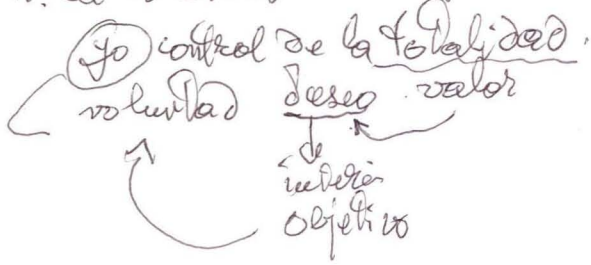 yo control de la totalidad.
voluntad deseo valor
de
interés
objetivo